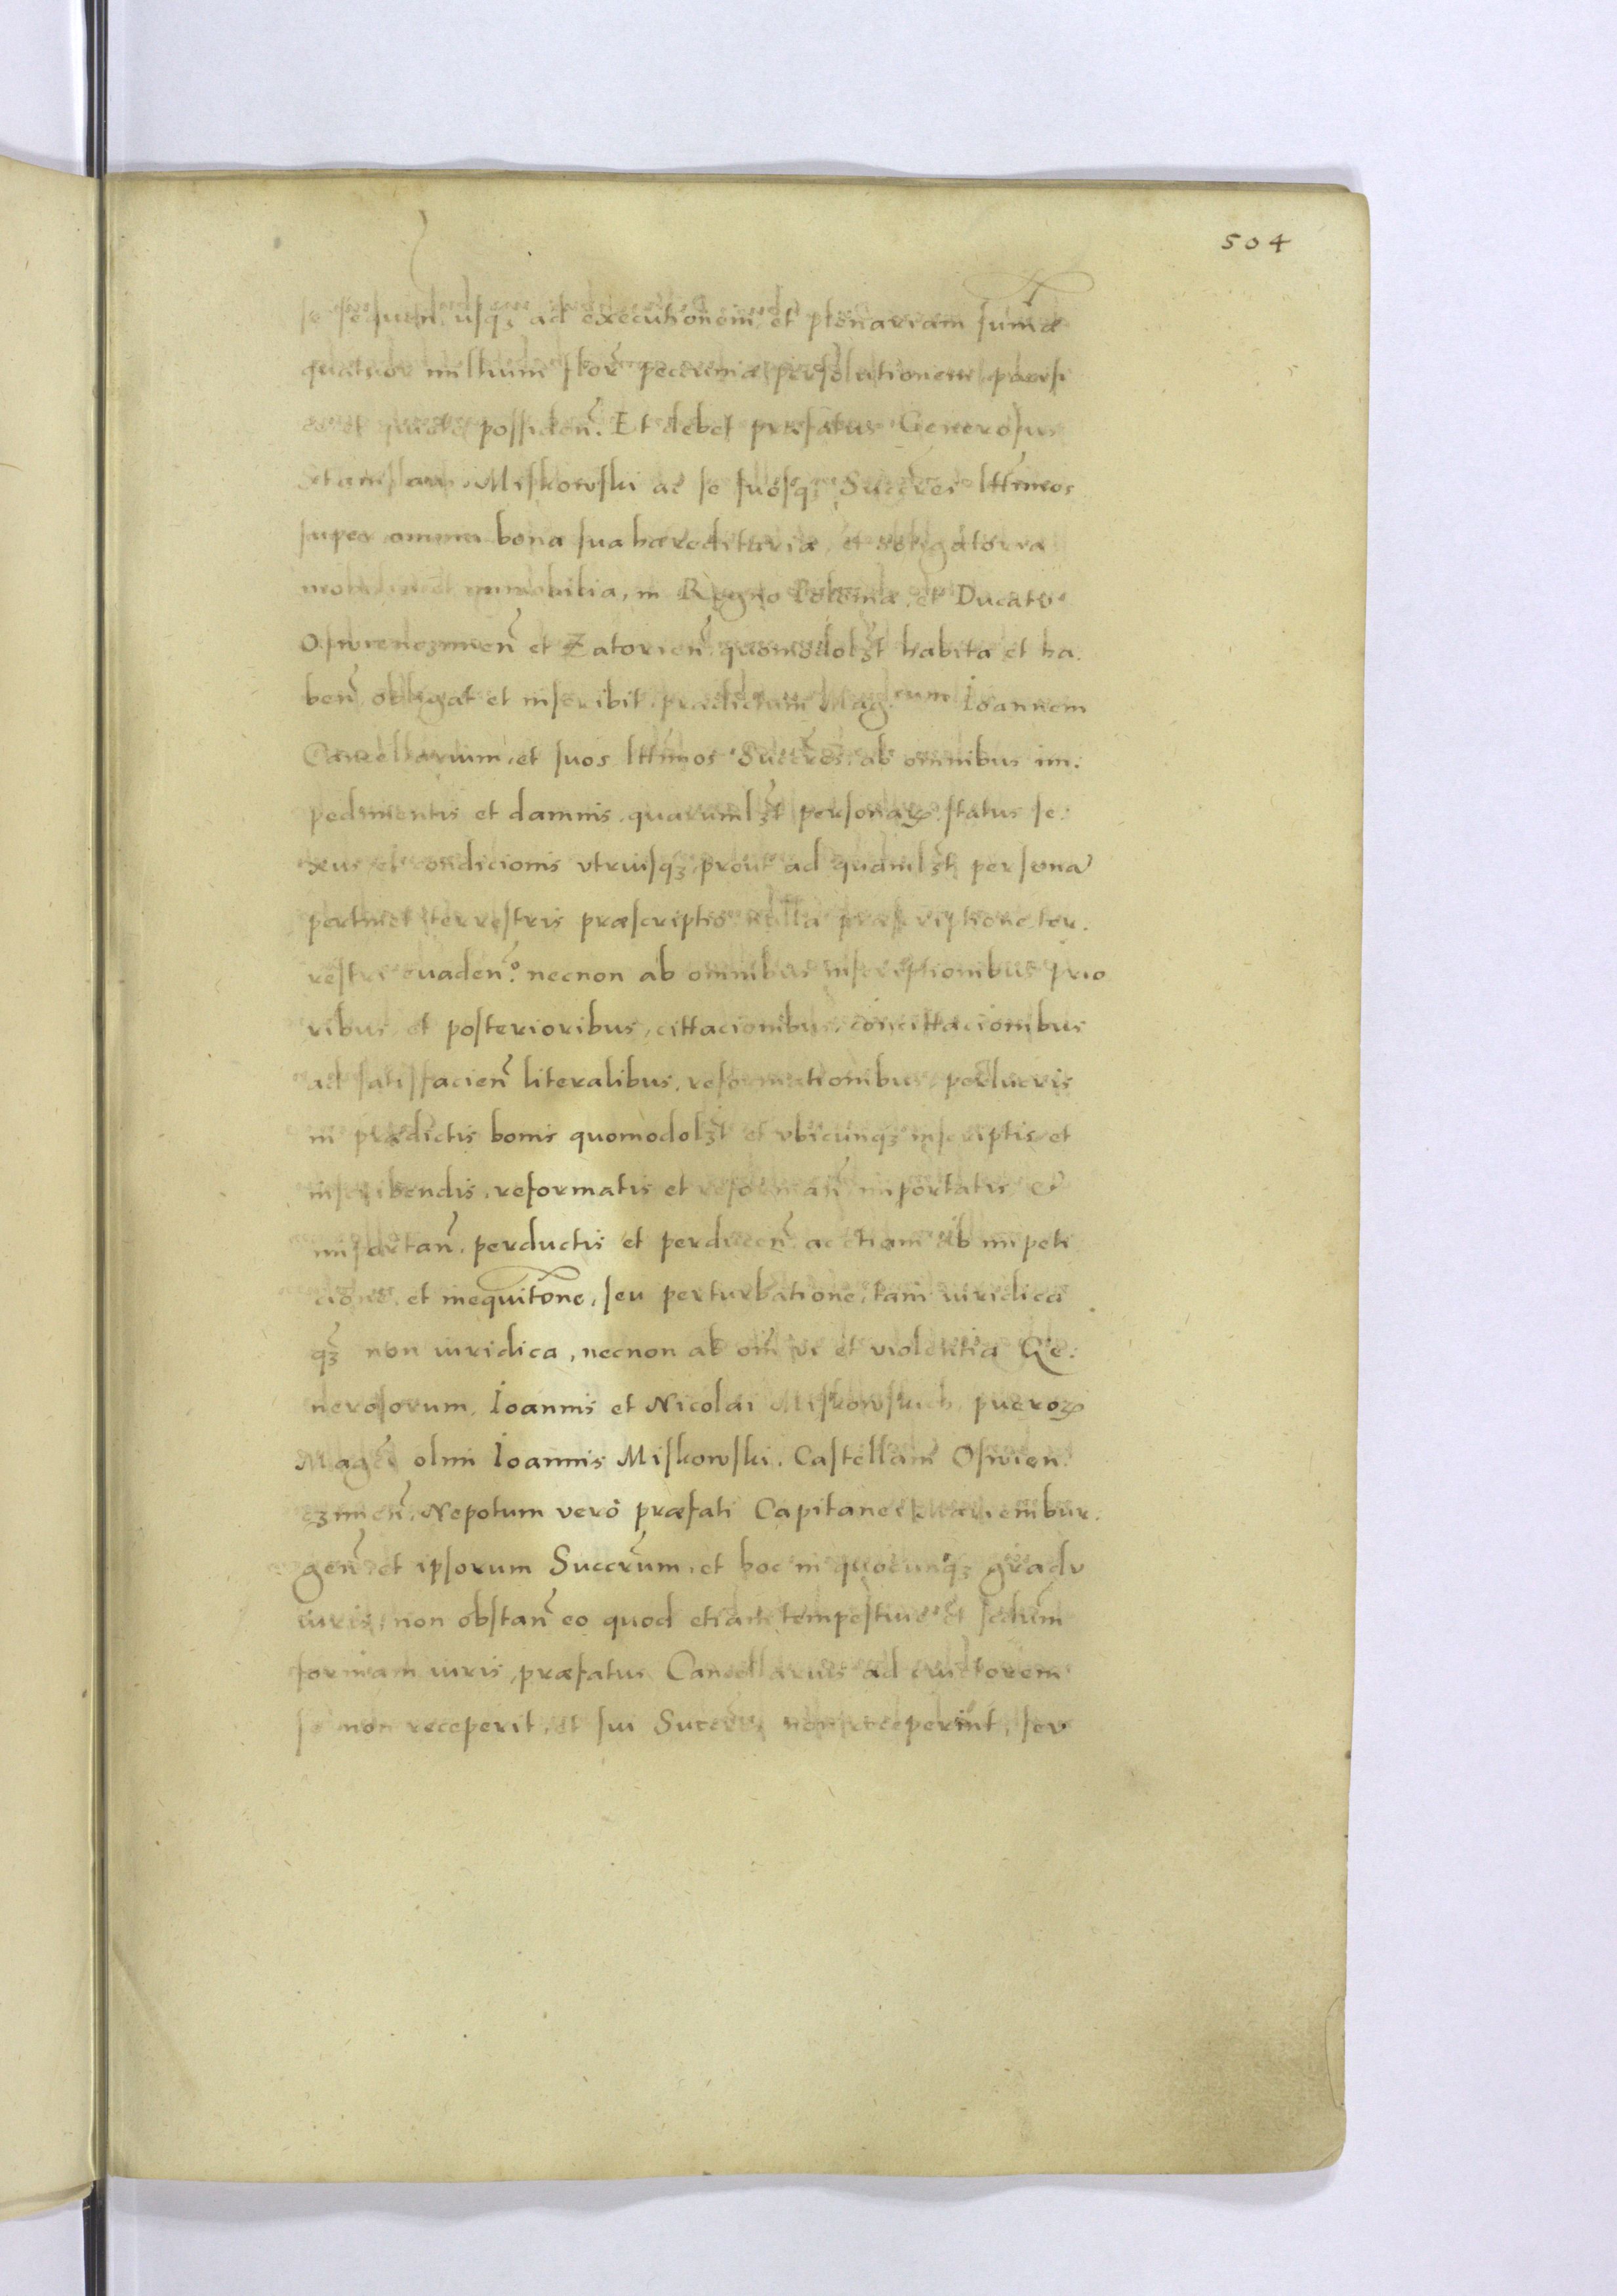 504
se sequen. usqȝ ad executionem, et plenariam sum̃æ
quatuor millium flor̃ pecuniæ persolutionem
possiden̄. Et debet præfatus Generosus
Stanislaus Miskowski ac se suosqȝ Succr̃es lttimos
super omnia bona sua hæreditaria, et obligatoria
mobilia et immobilia, in Regno Poloniæ, et Ducatu
Oswienczimen̄ et Zatorien̄ quomodolȝt habita et ha.
ben̄ obligat et inscribit prædictum Mag.cum Ioannem
Cancellarium, et suos lttimos Succr̃es, ab omnibus im.
pedimentis et damnis, quarumlȝt personarꝝ, status se:
xus et condicionis vtriusqȝ, prout ad quamlȝt persona
pertinet terrestris præscriptio nulla præscriptione ter.
restri euaden̄. necnon ab omnibus inscriptionibus prio
ribus et posterioribus, cittacionibus, concittacionibus
ad satisfacien̄ literalibus, reformationibus, perlucris
in prædictis bonis quomodolȝt et vbicunqȝ inscriptis et
inscribendis, reformatis et reforman̄ importatis et
importan̄, perductis et perducen̄ ac etiam ab impeti
cione, et inequitõne, seu perturbatione, tam iuridica
qȝ non iuridica, necnon ab om̄i vi et violentia Ge:
nerosorum, Ioannis et Nicolai Miskowskich, pueroꝝ
Mag̃ci olim Ioannis Miskowski. Castellani Oswien.
czimen̄, Nepotum verò præfati Capitanei Mariembur.
gen̄ et ipsorum Succr̃um, et hoc in quocunqȝ gradu
iuris, non obstan̄ eo quod etiam tempestiue et secdum̄
formam iuris, præfatus Cancellarius ad auctorem
se non receperit, et sui Succr̃es non receperint, seu